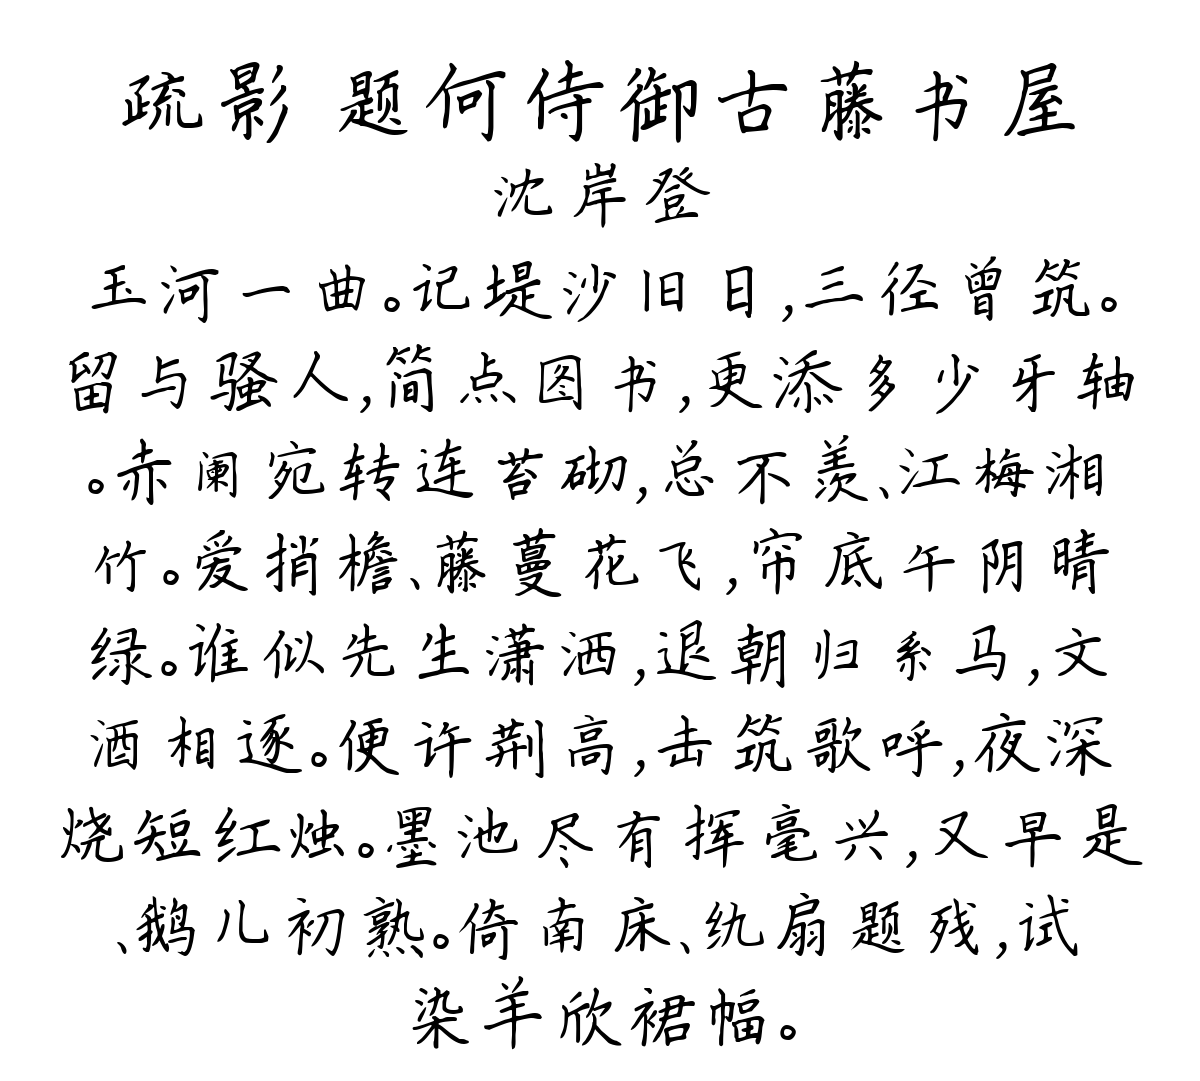 疏影 题何侍御古藤书屋
沈岸登
玉河一曲。记堤沙旧日,三径曾筑。
留与骚人,简点图书,更添多少牙轴
。赤阑宛转连苔砌,总不羡、江梅湘
竹。爱捎檐、藤蔓花飞,帘底午阴晴
绿。谁似先生潇洒,退朝归系马,文
酒相逐。便许荆高,击筑歌呼,夜深
烧短红烛。墨池尽有挥毫兴,又早是
、鹅儿初熟。倚南床、纨扇题残,试
染羊欣裙幅。